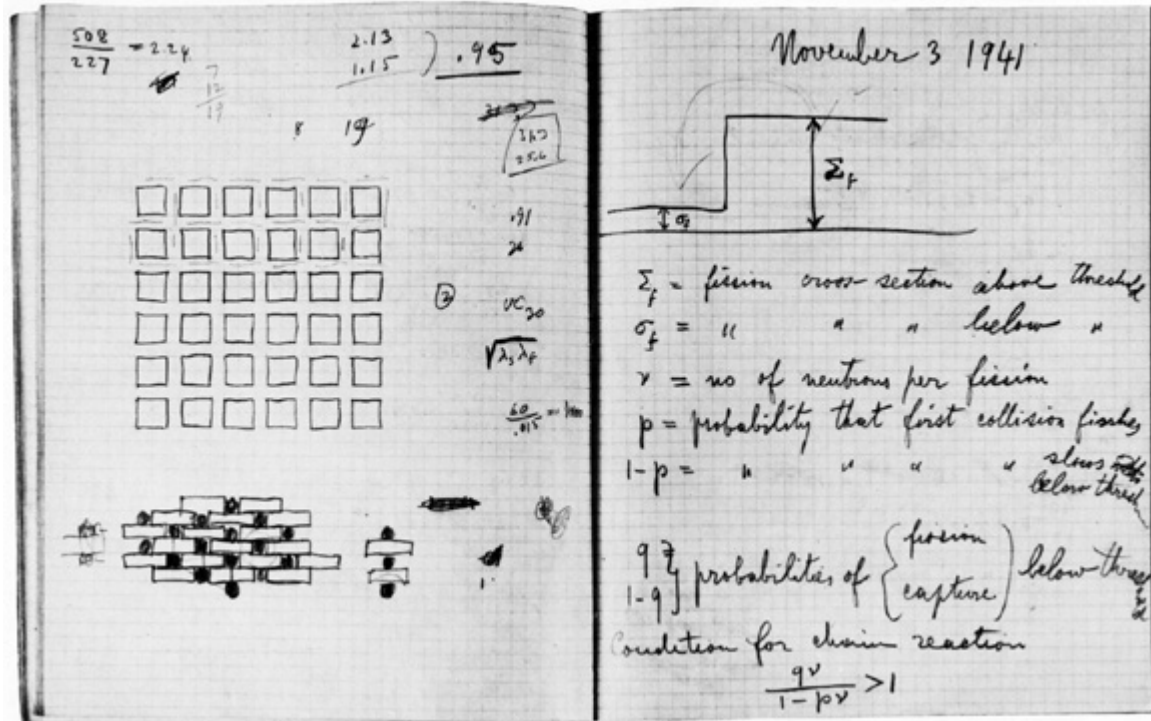 508
227 = 2.24
7
12
19
2.13
1.15 ) .95
8
.91
②
√λsλf
60
.015 =
November 3 1941
Σf
σf
Σf = fission cross section above threshold
σf = " " " below "
ν = no of neutrons per fission
p = probability that first collision
1-p = " " " " slows
below thresh
q
1-q } probabilities of { fission
capture } below threshold
Condition for chain reaction
qν
1-pν >1